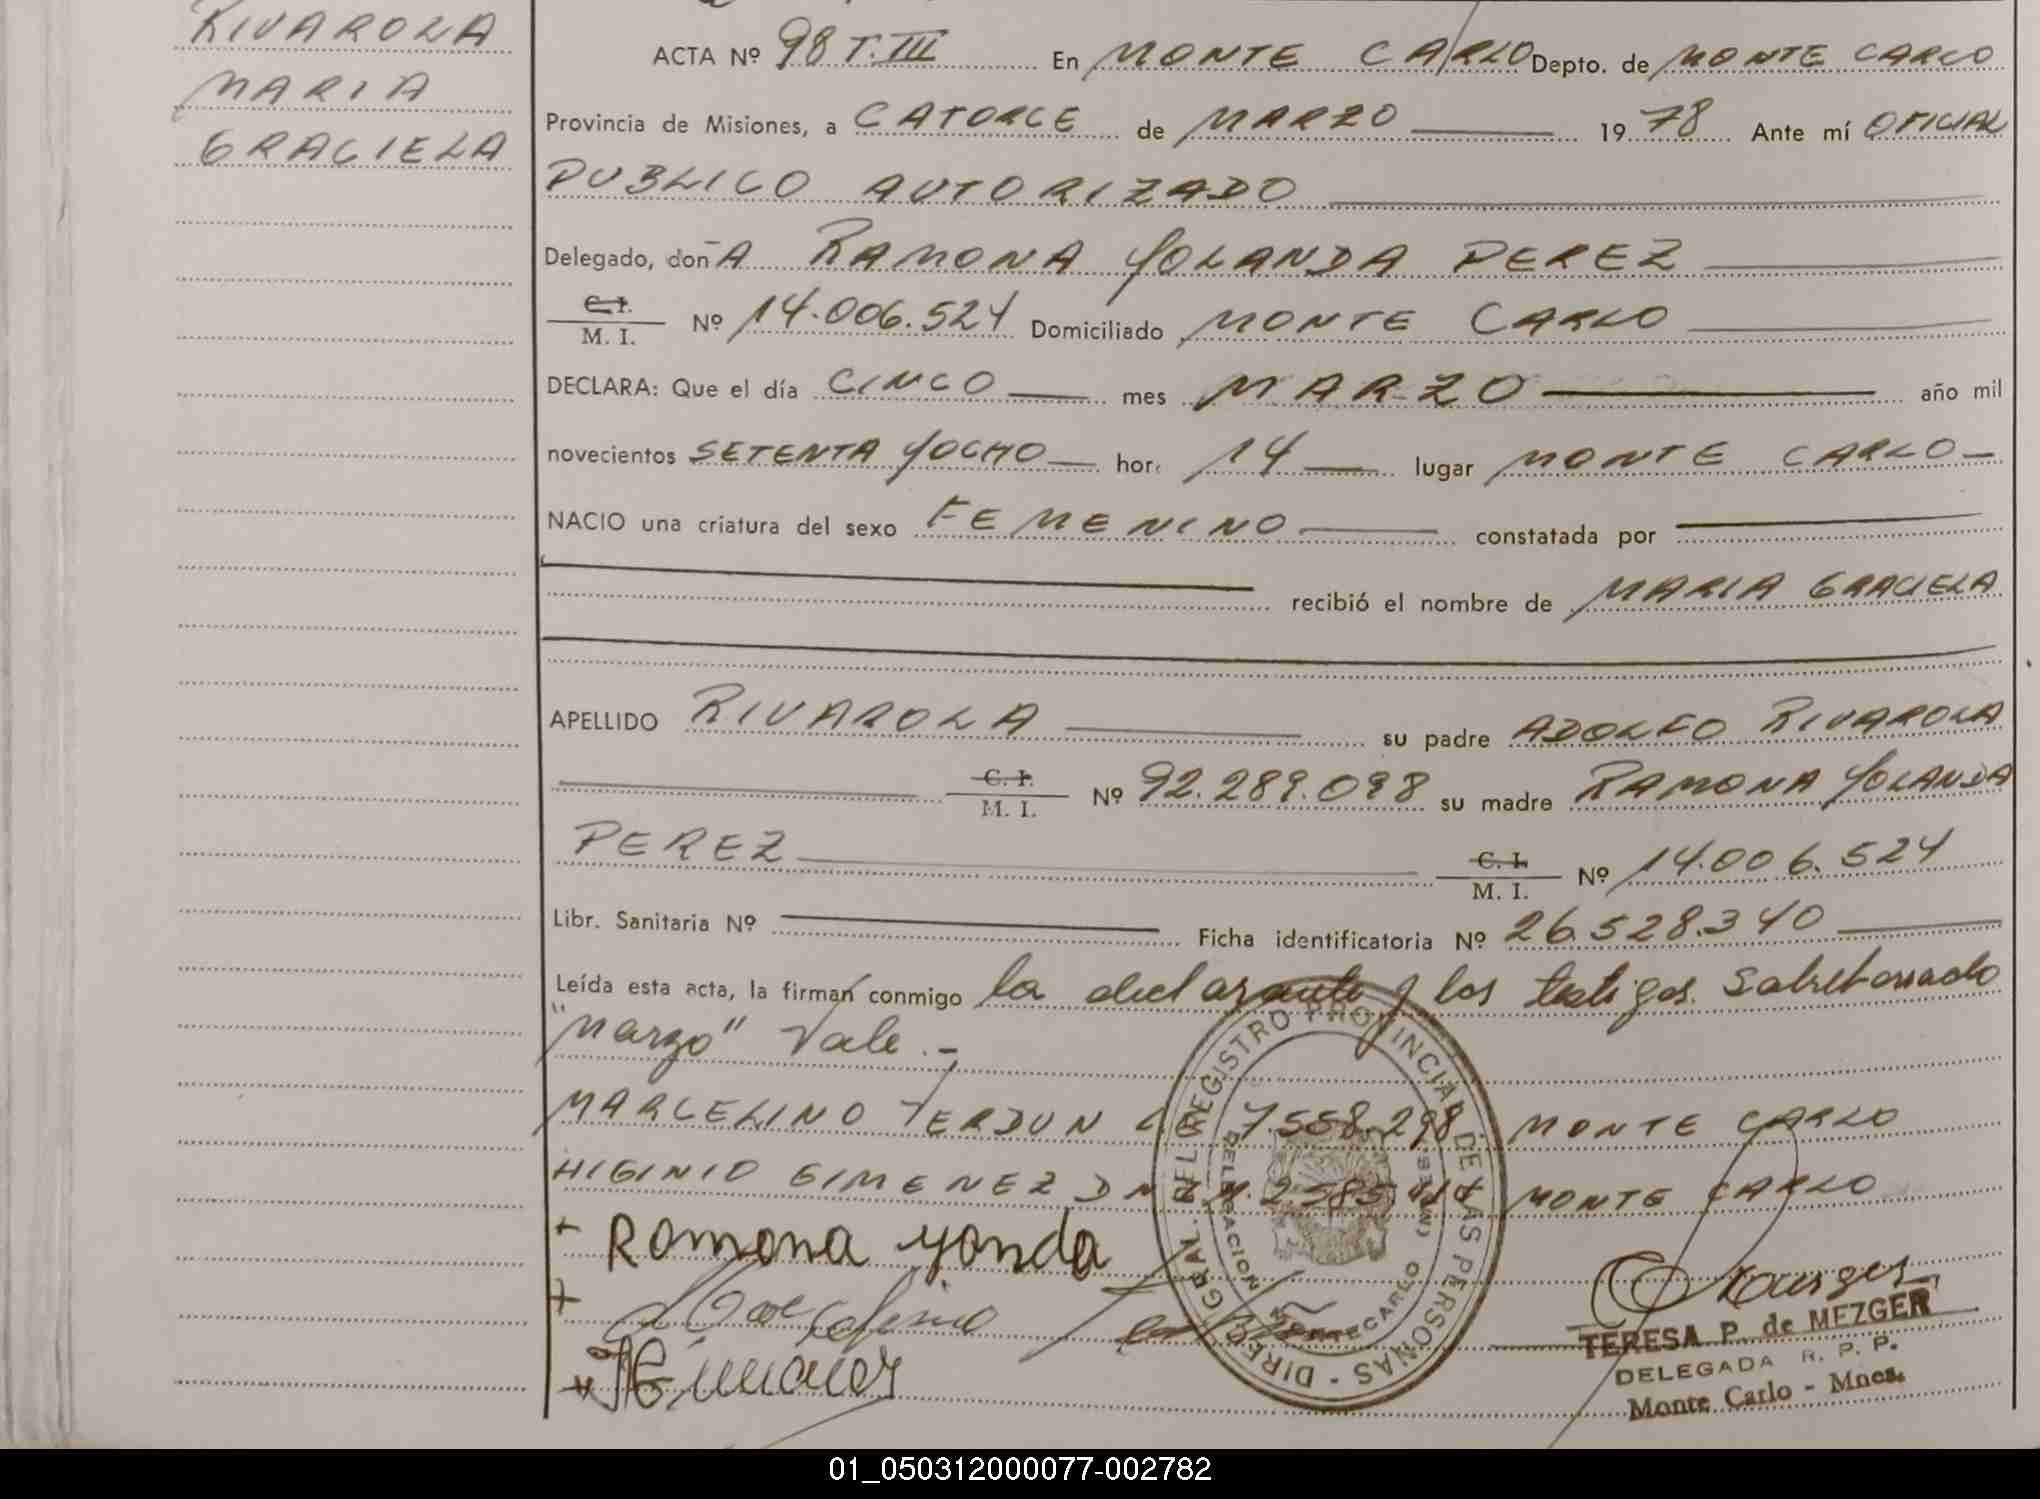 RIVAROLA
MARIA
GRACIELA
ACTA Nº 98 T. III En MONTE CARLO Depto. de MONTE CARLO
Provincia de Misiones, a CATORCE de MARZO 19 78 Ante mí OFICIAL
PUBLICO AUTORIZADO
Delegado, doñA RAMONA YOLANDA PEREZ
C. I.
M. I. Nº 14.006.524 Domiciliado MONTE CARLO
DECLARA: Que el día CINCO mes MARZO año mil
novecientos SETENTA YOCHO hor. 14 lugar MONTE CARLO
NACIO una criatura del sexo FEMENINO constatada por
recibió el nombre de MARIA GRACIELA
APELLIDO RIVAROLA su padre ADOLFO RIVAROLA
C. I.
M. I. Nº 92.289.098 su madre RAMONA YOLANDA
PEREZ C. I.
M. I. Nº 14.006.524
Libr. Sanitaria Nº Ficha identificatoria Nº 26.528.340
Leída esta acta, la firman conmigo la declarante y los testigos. Sobreborrado
"Marzo" Vale.-
MARCELINO YERDUN 7.558.298 MONTE CARLO
HIGINIO GIMENEZ MONTE CARLO
Ramona yonda
DIREC. GRAL. DEL REGISTRO PROVINCIAL DE LAS PERSONAS
DELEGACION MONTECARLO
TERESA P. de MEZGER
DELEGADA R. P. P.
Monte Carlo - Mnes.
01_050312000077-002782